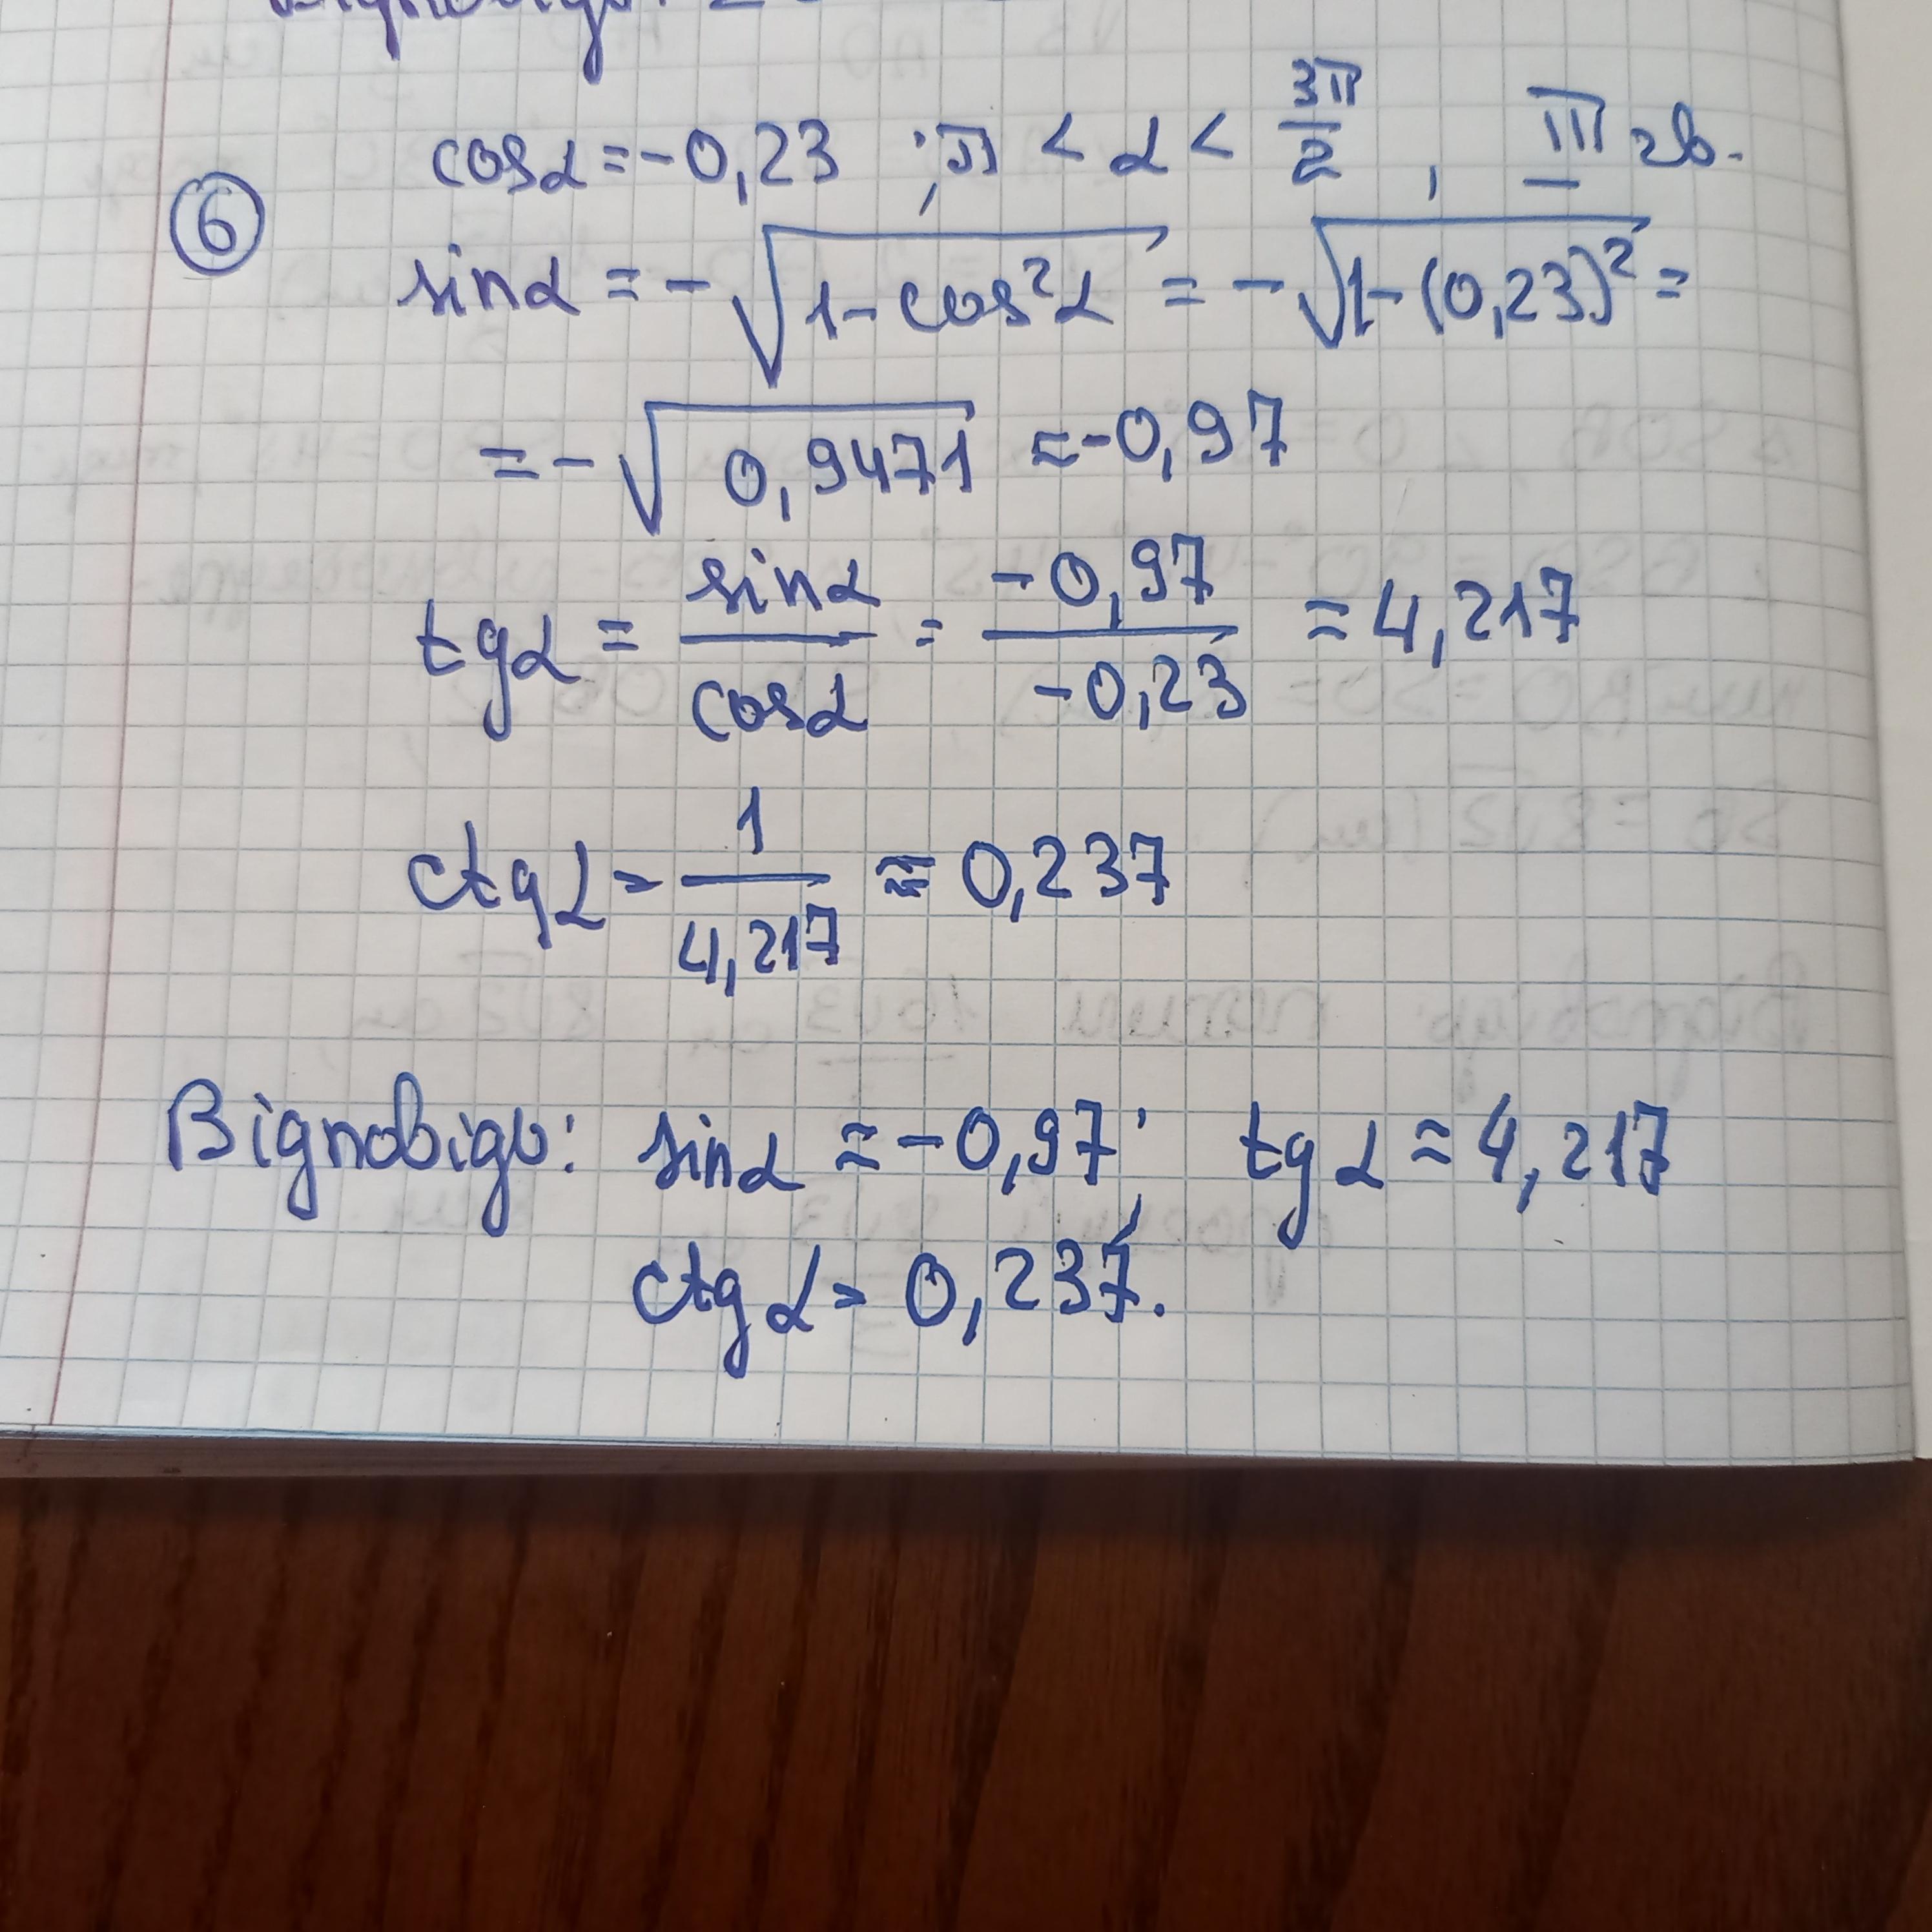 cosα = -0,23 ; π < α < 3π/2 , III чв.
6
sinα = -√(1-cos²α) = -√(1-(0,23)² =
= -√0,9471 ≈ -0,97
tgα = sinα/cosα = -0,97/-0,23 ≈ 4,217
ctgα = 1/4,217 ≈ 0,237
Відповідь: sinα ≈ -0,97; tgα ≈ 4,217
ctgα = 0,237.